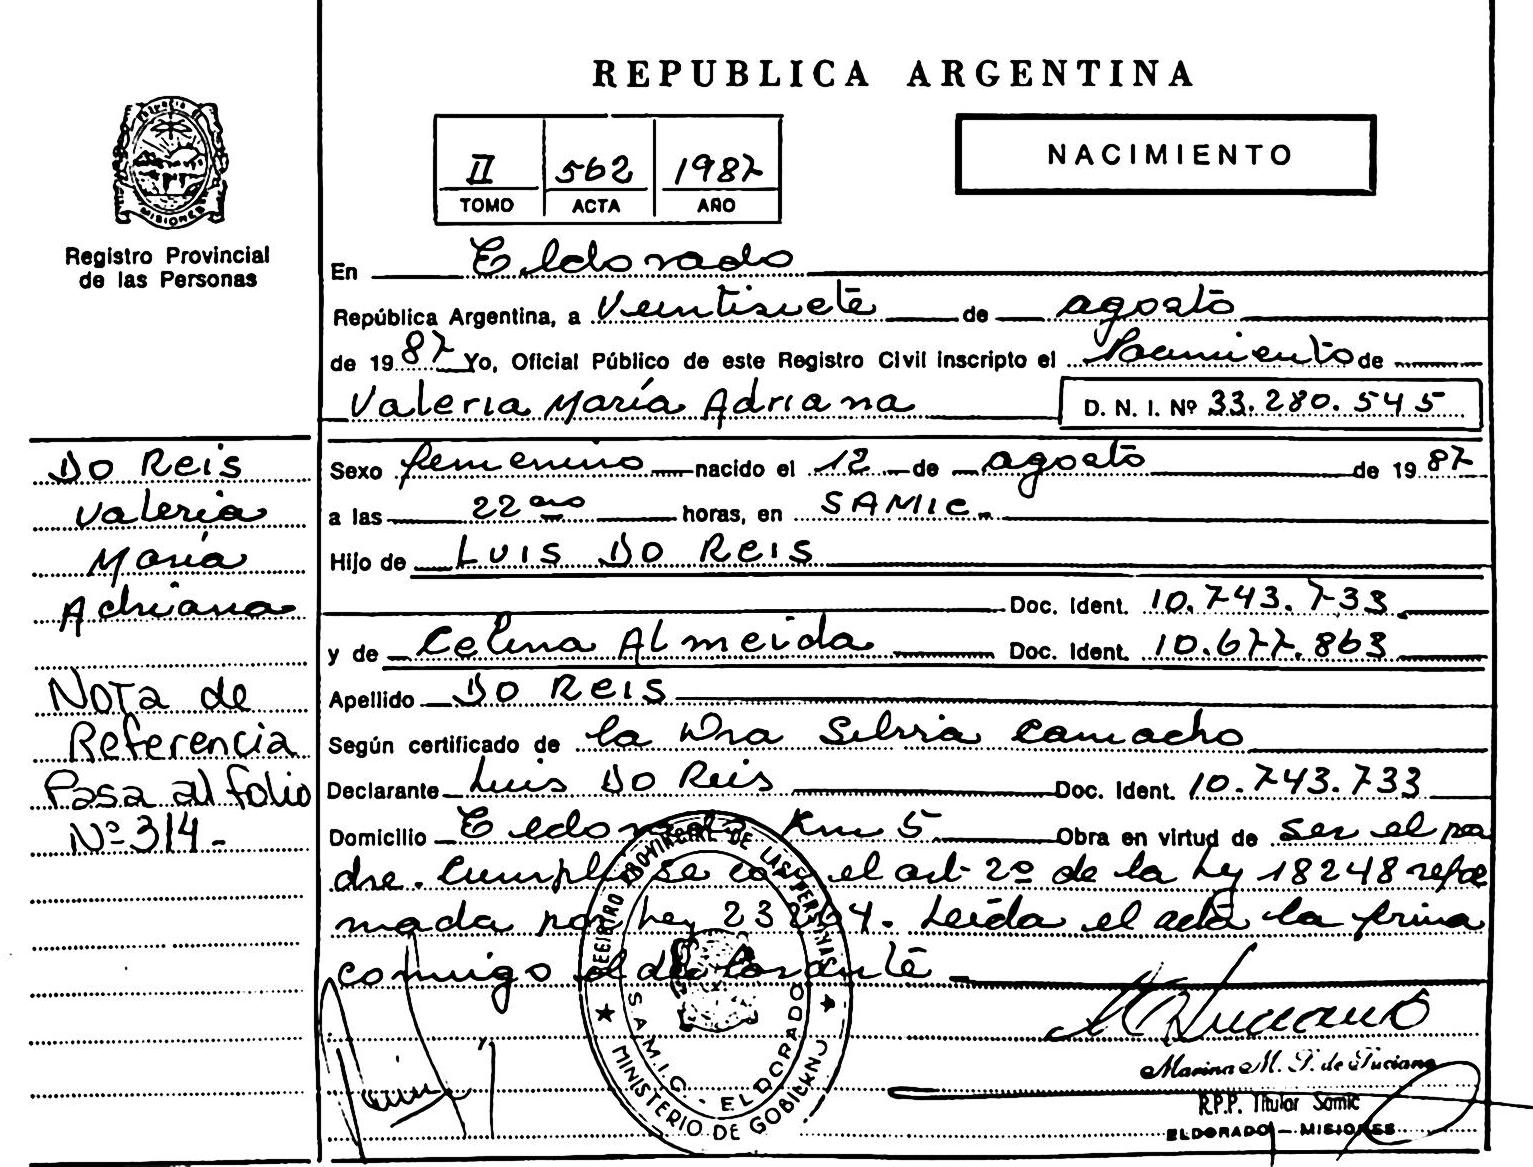 REPUBLICA ARGENTINA
II 562 1987
TOMO ACTA AÑO
NACIMIENTO
MISIONES
Registro Provincial
de las Personas
En Eldorado
República Argentina, a Veintisiete de agosto
de 1987 Yo, Oficial Público de este Registro Civil inscripto el Nacimiento de
Valeria María Adriana D. N. I. Nº 33.280.545
Sexo femenino nacido el 12 de agosto de 1987
a las 22 horas, en SAMIC.
Hijo de LUIS DO REIS
Doc. Ident. 10.743.733
y de Celina Almeida Doc. Ident. 10.677.863
Apellido DO REIS
Según certificado de la Dra Silvia Camacho
Declarante Luis Do Reis Doc. Ident. 10.743.733
Domicilio Eldorado Km 5 Obra en virtud de ser el pa
dre. Cumplese con el art 2º de la Ley 18248 refor
mada por Ley 23264. Leída el acta la firma
conmigo el declarante
Do Reis
Valeria
María
Adriana
Nota de
Referencia
Pasa al folio
Nº 314-
REGISTRO PROVINCIAL DE LAS PERSONAS
S.A.M.I.C. - ELDORADO
MINISTERIO DE GOBIERNO
Marina M. P. de Luciano
R.P.P. Titular Samic
ELDORADO - MISIONES